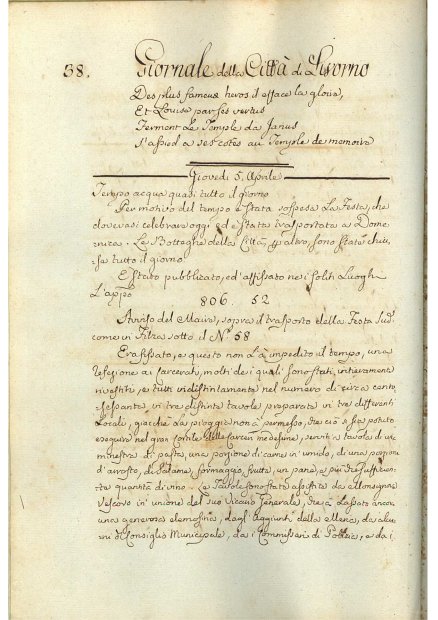 38. Giornale della Città di Livorno
Des plus fameux heros il efface la gloire,
Et Louise par ses vertus
Ferment le Temple da Janus
s'assied a ses cotés au Temple de memoire
Giovedi 5. Aprile
Tempo acqua quasi tutto il giorno
Per motivo del tempo è stata sospesa La Festa, che
dovevasi celebrare oggi ed è stata trasportata a Dome-
nica. Le Botteghe della Città, p altro, sono state chiu-
se tutto il giorno
È stato pubblicato, ed' affissato nei soliti Luoghi
L'appo
806. 52
Avviso del Maire, sopra il trasporto della Festa sudº
come in Filza sotto il Nº 58
Era fissato, e questo non l'à impedito il tempo, una
refezione ai Carcerati, molti de i quali sono stati, interamente
rivestiti, e tutti indistintamente nel numero di circa cento
sessanta in tre distinte tavole preparate in tre differenti
Locali, giacchè La pioggia non à permesso, che ciò si sia potuto
eseguire nel gran Cortile delle Carceri medesime, serviti a tavola di una
minestra di pasta, una porzione di carne in umido, di una porzione
d'arrosto, di Salame, formaggio, frutta, un pane, e più che sufficien-
te quantità di vino. Le Tavole sono state assistite da Monsignore
Vescovo in' unione del suo Vicario Generale, che à Lassato ancora
una generosa elemosina, dagl' Aggiunti della Meria, da alcu-
ni di Consiglio Municipale, da i Commissari di Polizia, e da i